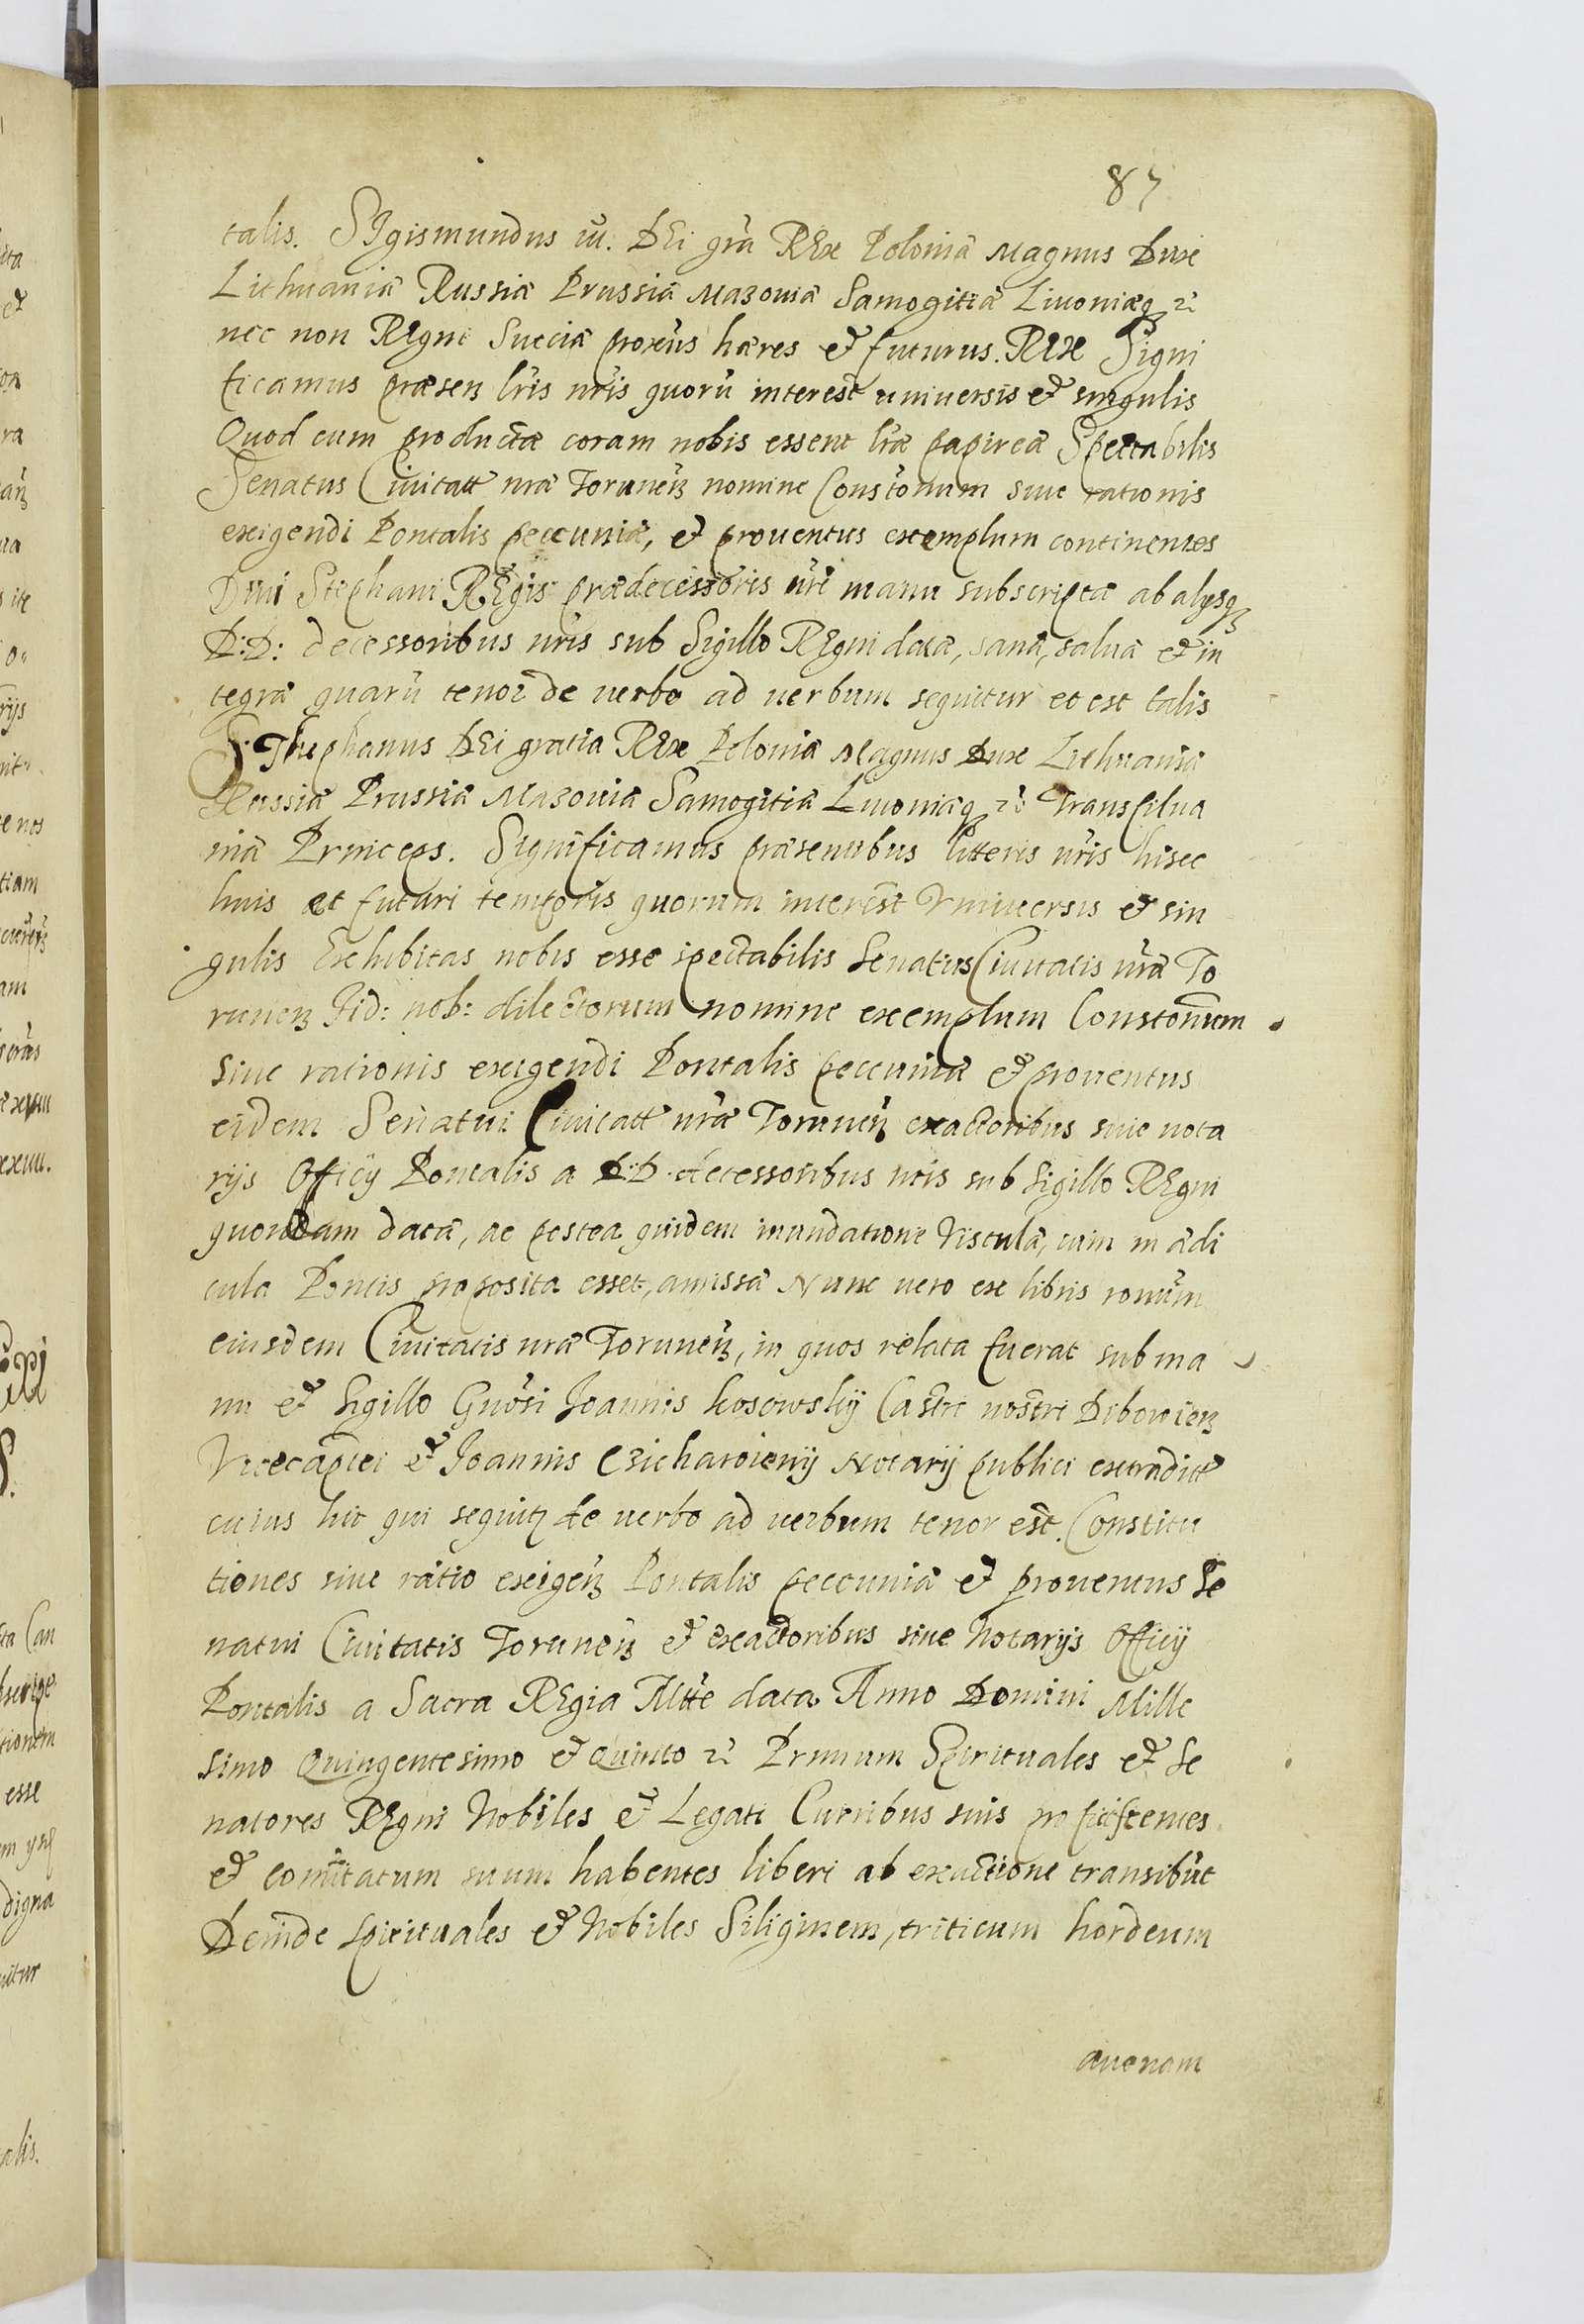 87
talis. SIgismundus iii. DEi gr̃a REx Poloniæ Magnus Dux
Lithuaniæ Russiæ Prussiæ Mazouiæ Samogitiæ Liuoniæqꝫ ꝛc
nec non REgni Sueciæ proxi̇us hæres et futurus. REx Signi
ficamus præsenꝫ lr̃is nr̃is quorũ interest uniuersis et singulis
Quod cum productæ coram nobis essent lr̃æ papireæ Spectabilis
Senatus Ciuitatt nr̃æ Torunenꝫ nomine Constõnum siue rationis
exigendi Pontalis peccuniæ, et prouentus exemplum continentes
Diui Stephani REgis prædecessoris nr̃i manu subscriptæ ab alysqꝫ
D:D: decessoribus nr̃is sub Sigillo REgni datæ, sanæ, saluæ et in
tegræ quarũ tenor de uerbo ad uerbum sequitur et est talis
SThephanus DEi gratia REx Poloniæ Magnus Dux Lithuaniæ
Russiæ Prussiæ Mazouiæ Samogitiæ Liuoniæqꝫ ꝛc Transsilua
niæ Princeps. Significamus præsentibus litteris nr̃is hisec
huis et futuri temporis quorum interest Vniuersis et sin
gulis Exhibitas nobis esse spectabilis Senatus Ciuitatis nr̃æ To
runenꝫ Fid: nob: dilectorum nomine exemplum Constonũm
siue rationis exigendi Pontalis peccuniæ et prouentus
eidem Senatui Ciuitatt nr̃æ Torunenꝫ exactoribus siue nota
rijs Officij Pontalis a D:D. decessoribus nr̃is sub Sigillo REgni
quondam datæ, ac postea quidem inundatione Vistulæ, cum in ædi
cula Pontis proposita esset, amissæ Nunc uero ex libris ronũm
eiusdem Ciuitatis nr̃æ Torunenꝫ, in quos relata fuerat sub ma
nu et Sigillo Gnosi Joannis Kosowskij Castri nostri Dibowienꝫ
Vicecaptei et Joannis Czicharoienij Notarij publici extraditt
cuius hic qui sequitꝫ de uerbo ad uerbum tenor est. Constitu
tiones siue ratio exigenꝫ Pontalis peccuniæ et prouentus Se
natui Ciuitatis Torunenꝫ et exactoribus siue Notarijs Officij
Pontalis a Sacra REgia Mtte data Anno Domini Mille
simo Quingentesimo et Quinto ꝛc Primum Spirituales et Se
natores REgni Nobiles et Legati Curribus suis proficiscentes
et comitatum suum habentes liberi ab exactione transibũt
Deinde spirituales et Nobiles Siliginem, triticum hordeum
auenam